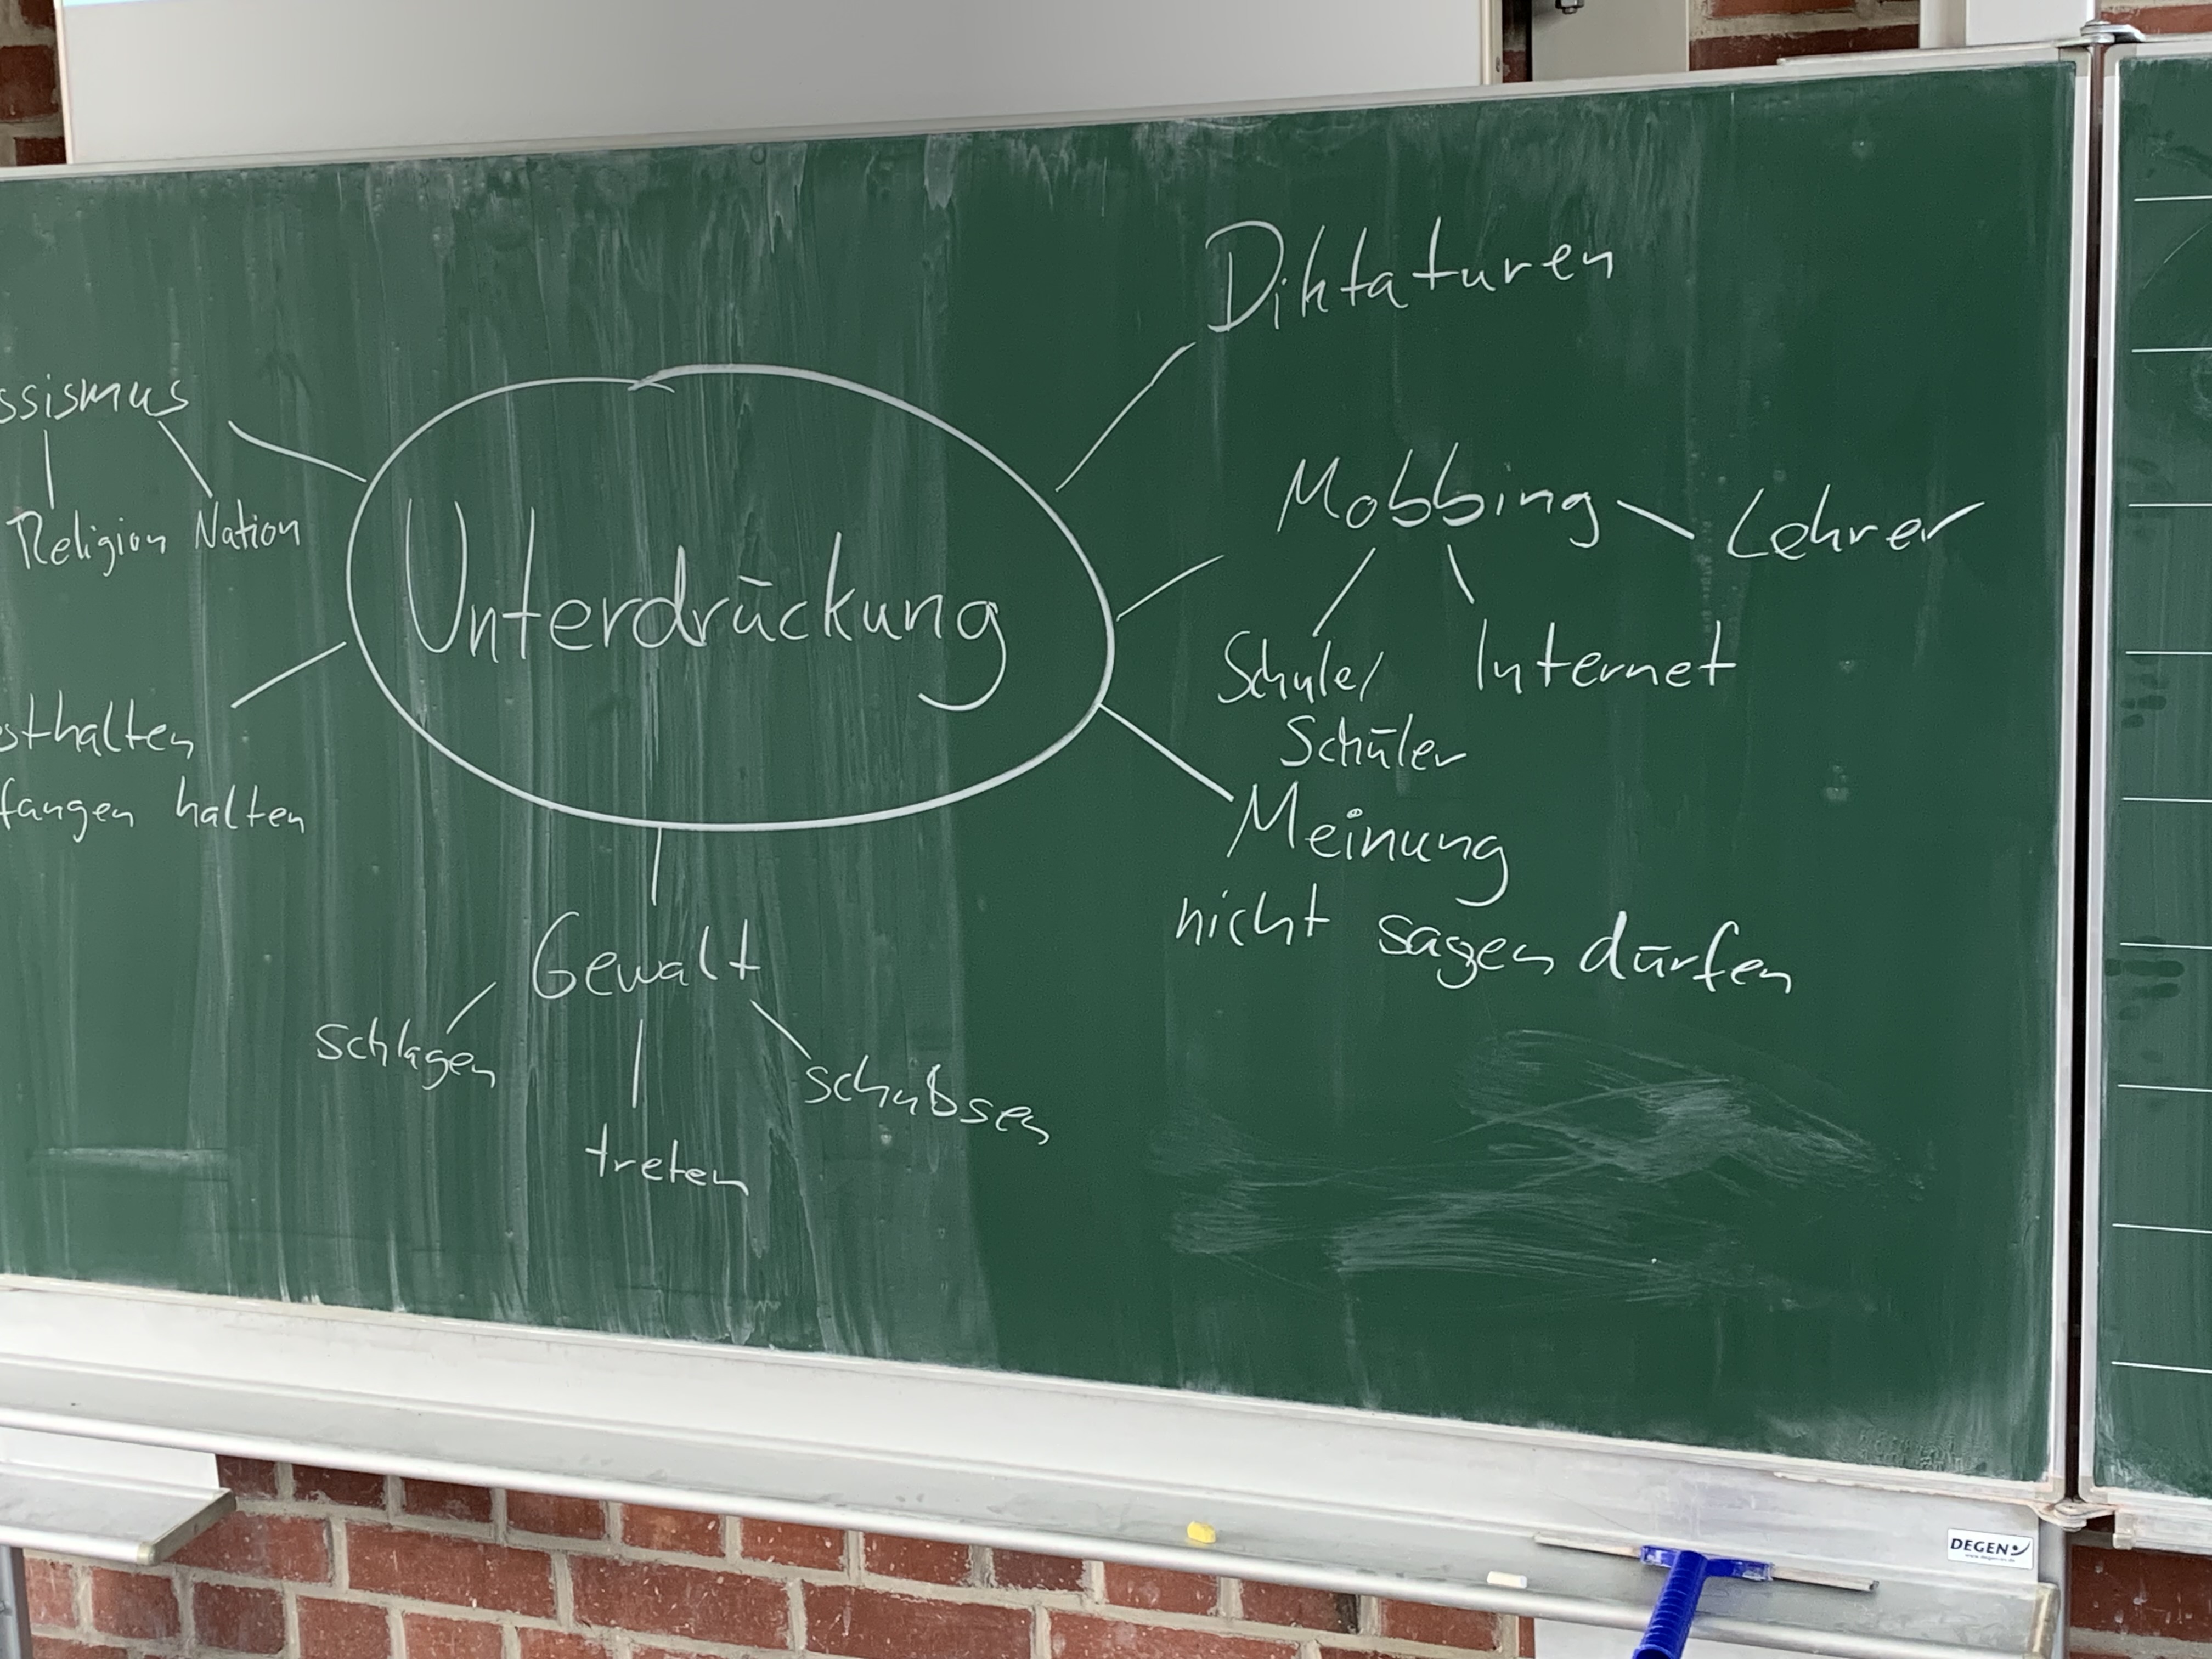 Diktaturen
ssismus
Religion Nation
Unterdrückung
Mobbing
Lehrer
Schule/
Schüler
Internet
sthalten
fangen halten
Meinung
nicht sagen dürfen
Gewalt
schlagen
treten
schubsen
DEGEN